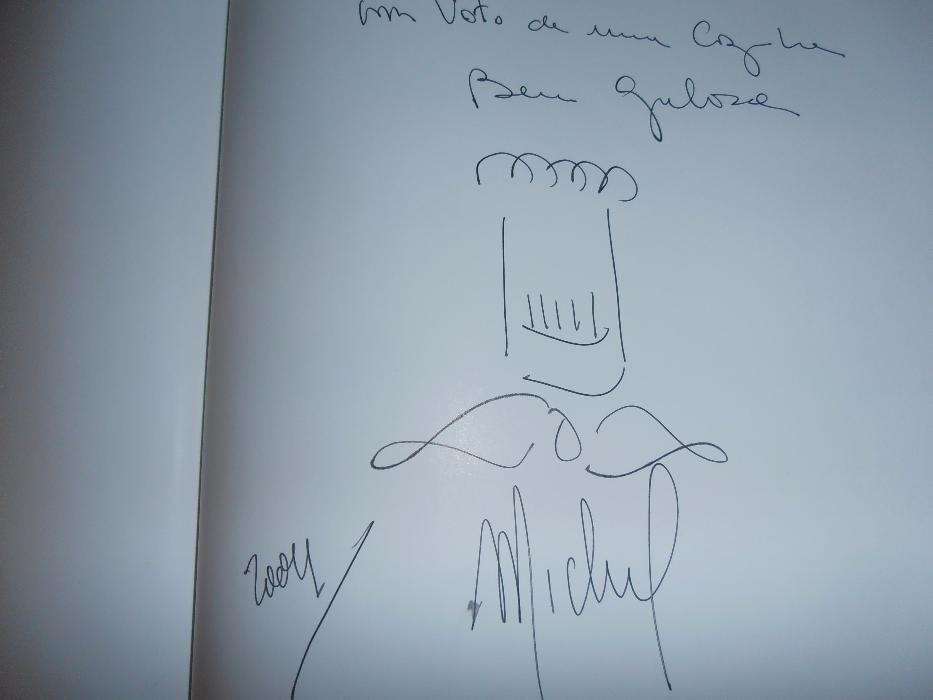 com Voto de uma Cozinha
Bem Gulosa
2004
Michel